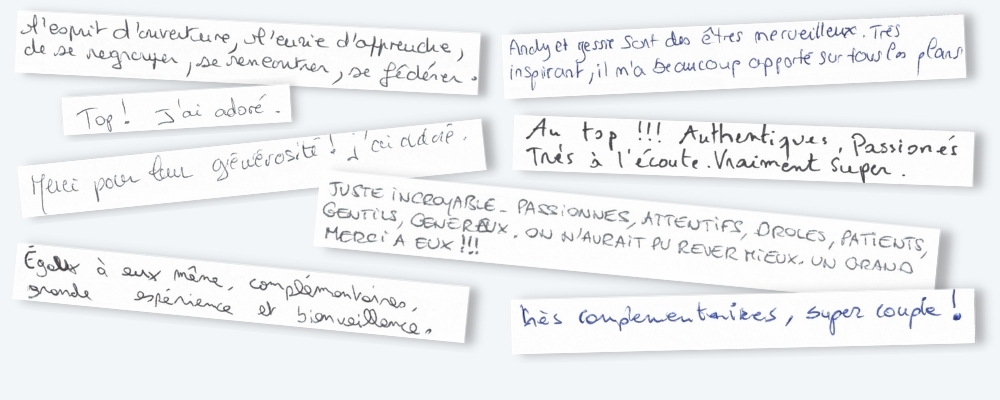 L'esprit d'ouverture, l'envie d'apprendre,
de se regrouper, se rencontrer, se fédérer.
Andy et Jessie sont des êtres merveilleux. Très
inspirant, il m'a beaucoup apporté sur tous les plans
Top! J'ai adoré.
Au top !!! Authentiques, Passionés
Très à l'écoute. Vraiment super.
Merci pour leur générosité! j'ai adoré.
JUSTE INCROYABLE - PASSIONNES, ATTENTIFS, DROLES, PATIENTS,
GENTILS, GENEREUX. ON N'AURAIT PU REVER MIEUX. UN GRAND
MERCI A EUX !!!
Égaux à eux même, complémentaires,
grande expérience et bienveillence.
très complementaires, super couple !